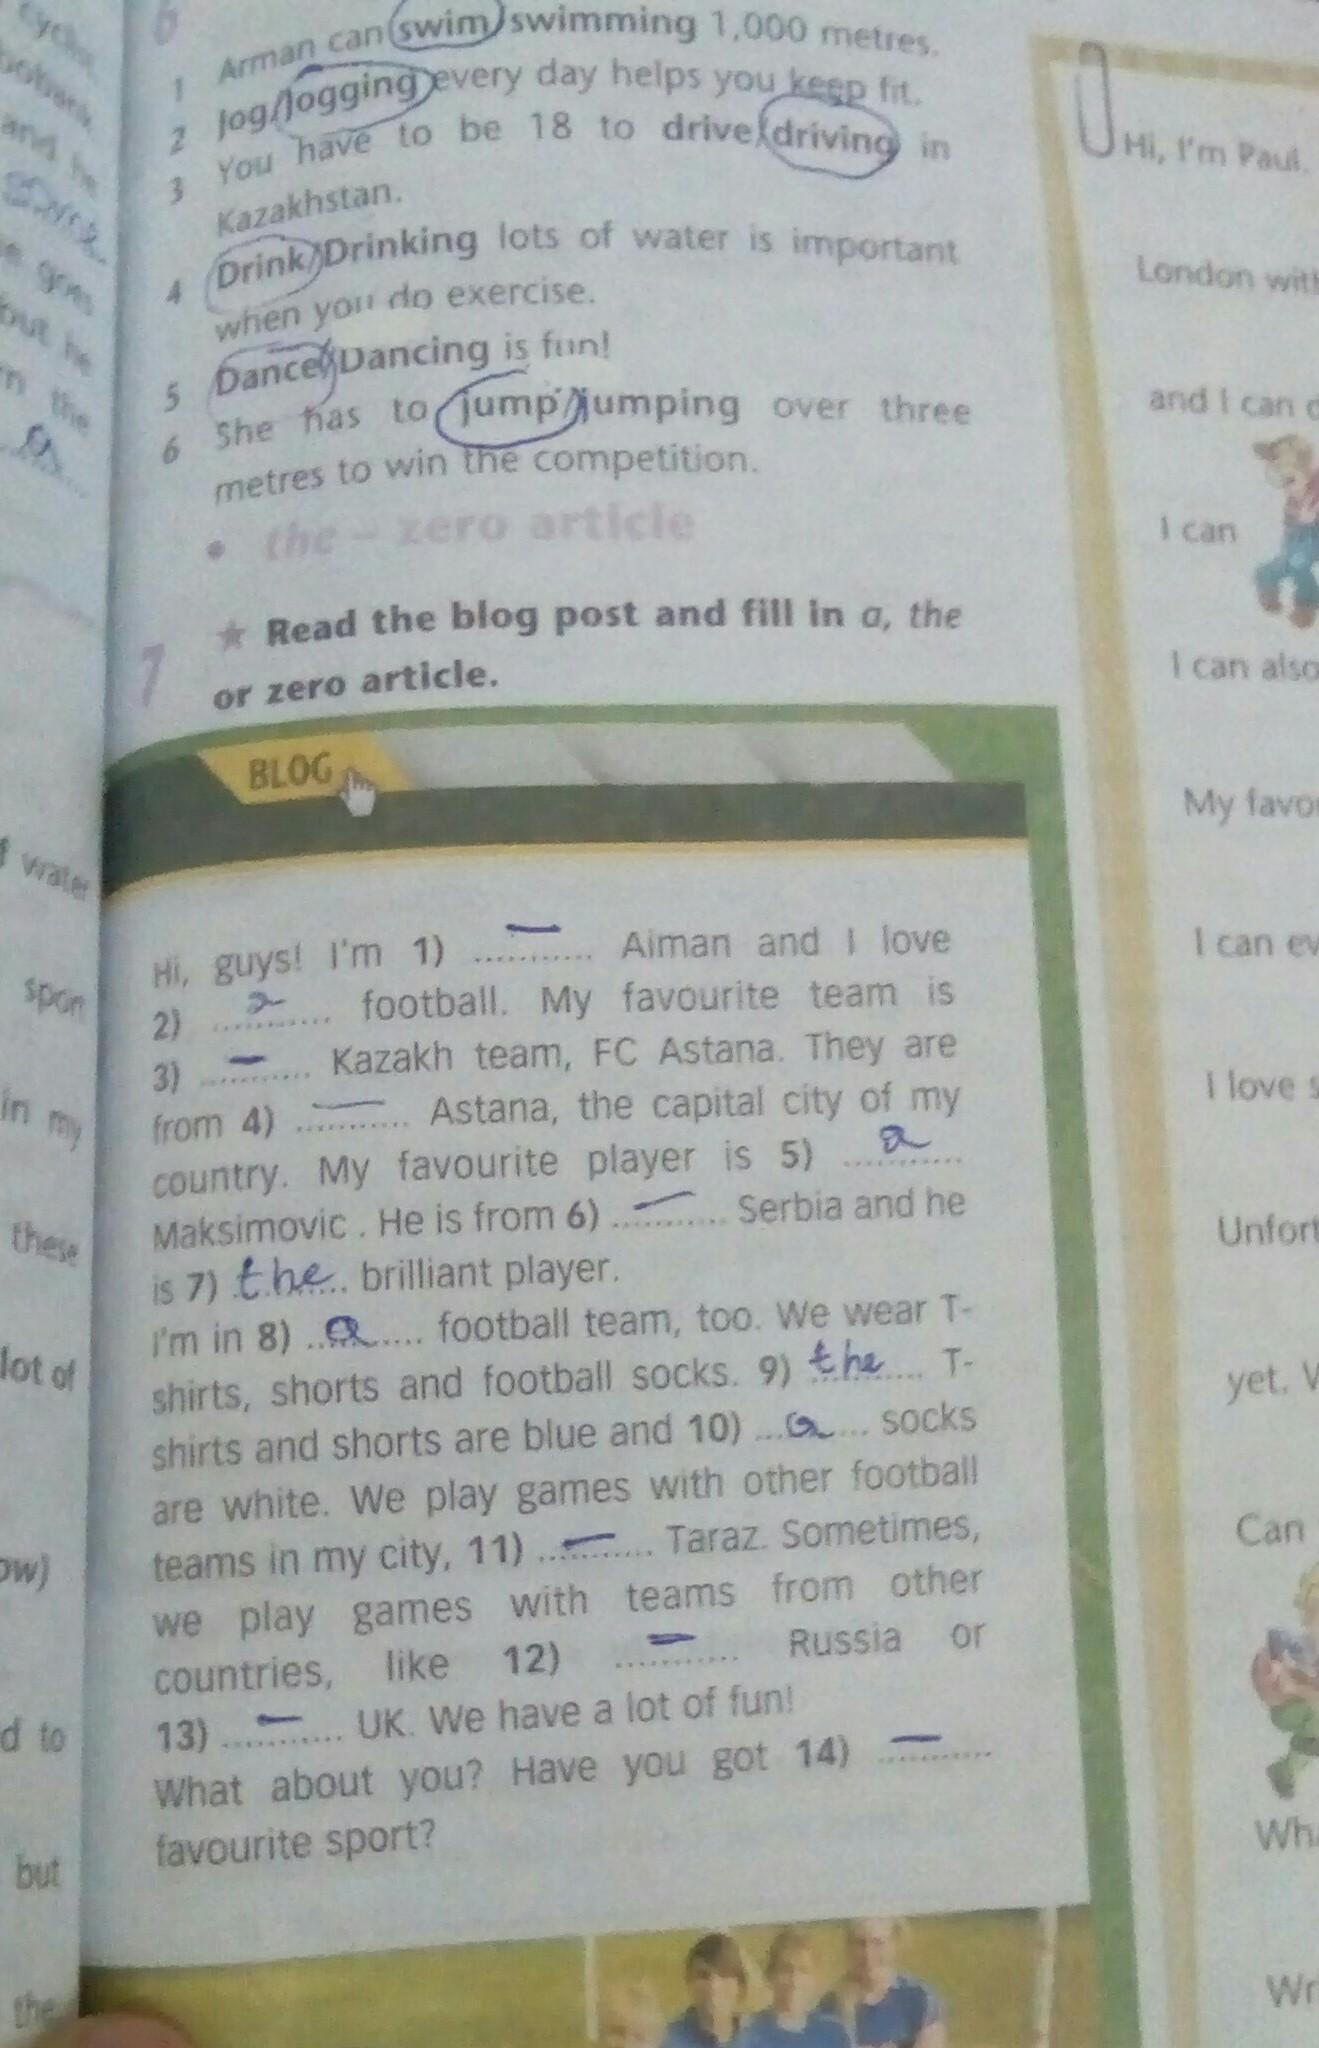 6
1 Arman can swim/swimming 1,000 metres.
2 Jog/Jogging every day helps you keep fit.
3 You have to be 18 to drive/driving in
Kazakhstan.
4 Drink/Drinking lots of water is important
when you do exercise.
5 Dance/Dancing is fun!
6 She has to jump/jumping over three
metres to win the competition.
• the – zero article
7 ★ Read the blog post and fill in a, the
or zero article.
BLOG
Hi, guys! I'm 1) — Aiman and I love
2) a football. My favourite team is
3) — Kazakh team, FC Astana. They are
from 4) — Astana, the capital city of my
country. My favourite player is 5) a
Maksimovic . He is from 6) — Serbia and he
is 7) the brilliant player.
I'm in 8) a football team, too. We wear T-
shirts, shorts and football socks. 9) the T-
shirts and shorts are blue and 10) a socks
are white. We play games with other football
teams in my city, 11) — Taraz. Sometimes,
we play games with teams from other
countries, like 12) — Russia or
13) — UK. We have a lot of fun!
What about you? Have you got 14) —
favourite sport?
and he
goes
but he
the
a
water
in my
these
lot of
ow)
d to
but
the
Hi, I'm Paul.
London with
and I can
I can
I can also
My favo
I can ev
I love s
Unfort
yet.
Can
Wh
Wr